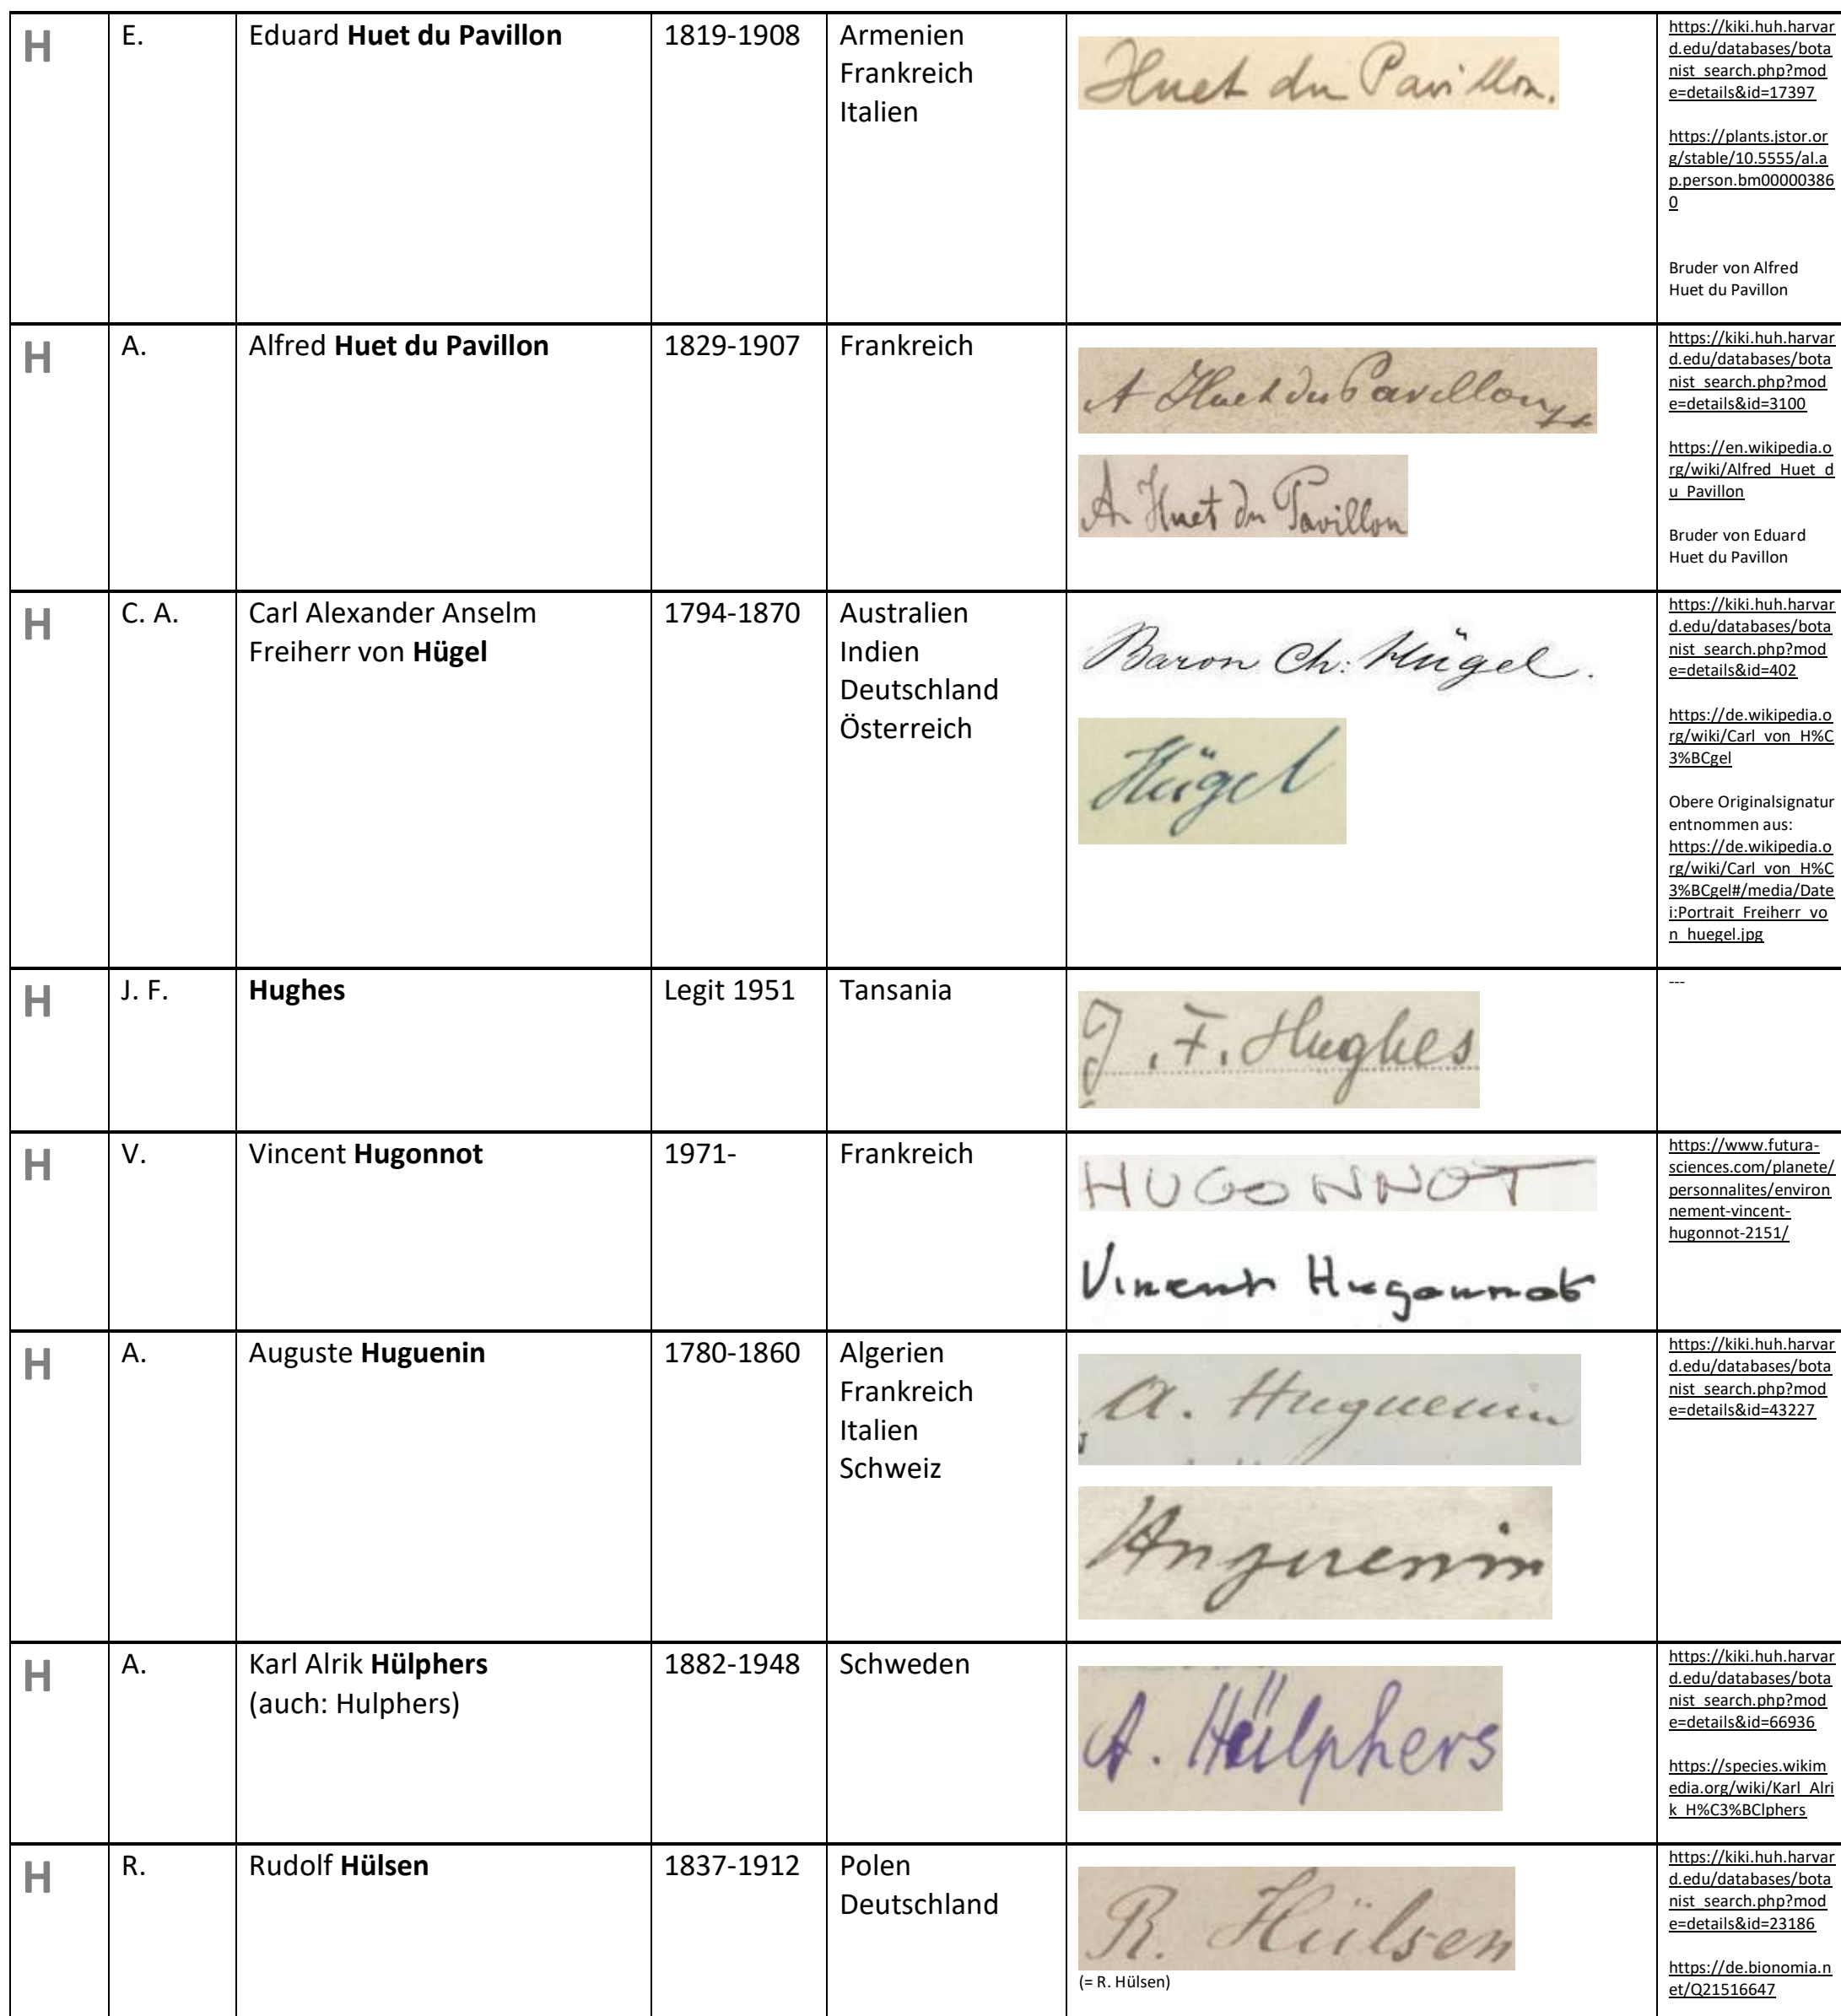 H E. Eduard Huet du Pavillon 1819-1908 Armenien
Frankreich
Italien
Huet du Pavillon.
https://kiki.huh.harvar
d.edu/databases/bota
nist_search.php?mod
e=details&id=17397
https://plants.jstor.or
g/stable/10.5555/al.a
p.person.bm00000386
0
Bruder von Alfred
Huet du Pavillon
H A. Alfred Huet du Pavillon 1829-1907 Frankreich
A Huet du Pavillon
A. Huet du Pavillon
https://kiki.huh.harvar
d.edu/databases/bota
nist_search.php?mod
e=details&id=3100
https://en.wikipedia.o
rg/wiki/Alfred_Huet_d
u_Pavillon
Bruder von Eduard
Huet du Pavillon
H C. A. Carl Alexander Anselm
Freiherr von Hügel
1794-1870
Australien
Indien
Deutschland
Österreich
Baron Ch: Hügel.
Hügel
https://kiki.huh.harvar
d.edu/databases/bota
nist_search.php?mod
e=details&id=402
https://de.wikipedia.o
rg/wiki/Carl_von_H%C
3%BCgel
Obere Originalsignatur
entnommen aus:
https://de.wikipedia.o
rg/wiki/Carl_von_H%C
3%BCgel#/media/Date
i:Portrait_Freiherr_vo
n_huegel.jpg
H J. F. Hughes Legit 1951 Tansania
J. F. Hughes
---
H V. Vincent Hugonnot 1971- Frankreich
HUGONNOT
Vincent Hugonnot
https://www.futura-
sciences.com/planete/
personnalites/environ
nement-vincent-
hugonnot-2151/
H A. Auguste Huguenin 1780-1860 Algerien
Frankreich
Italien
Schweiz
A. Huguenin
Huguenin
https://kiki.huh.harvar
d.edu/databases/bota
nist_search.php?mod
e=details&id=43227
H A. Karl Alrik Hülphers
(auch: Hulphers)
1882-1948 Schweden
A. Hülphers
https://kiki.huh.harvar
d.edu/databases/bota
nist_search.php?mod
e=details&id=66936
https://species.wikim
edia.org/wiki/Karl_Alri
k_H%C3%BClphers
H R. Rudolf Hülsen 1837-1912 Polen
Deutschland
R. Hülsen
(= R. Hülsen)
https://kiki.huh.harvar
d.edu/databases/bota
nist_search.php?mod
e=details&id=23186
https://de.bionomia.n
et/Q21516647